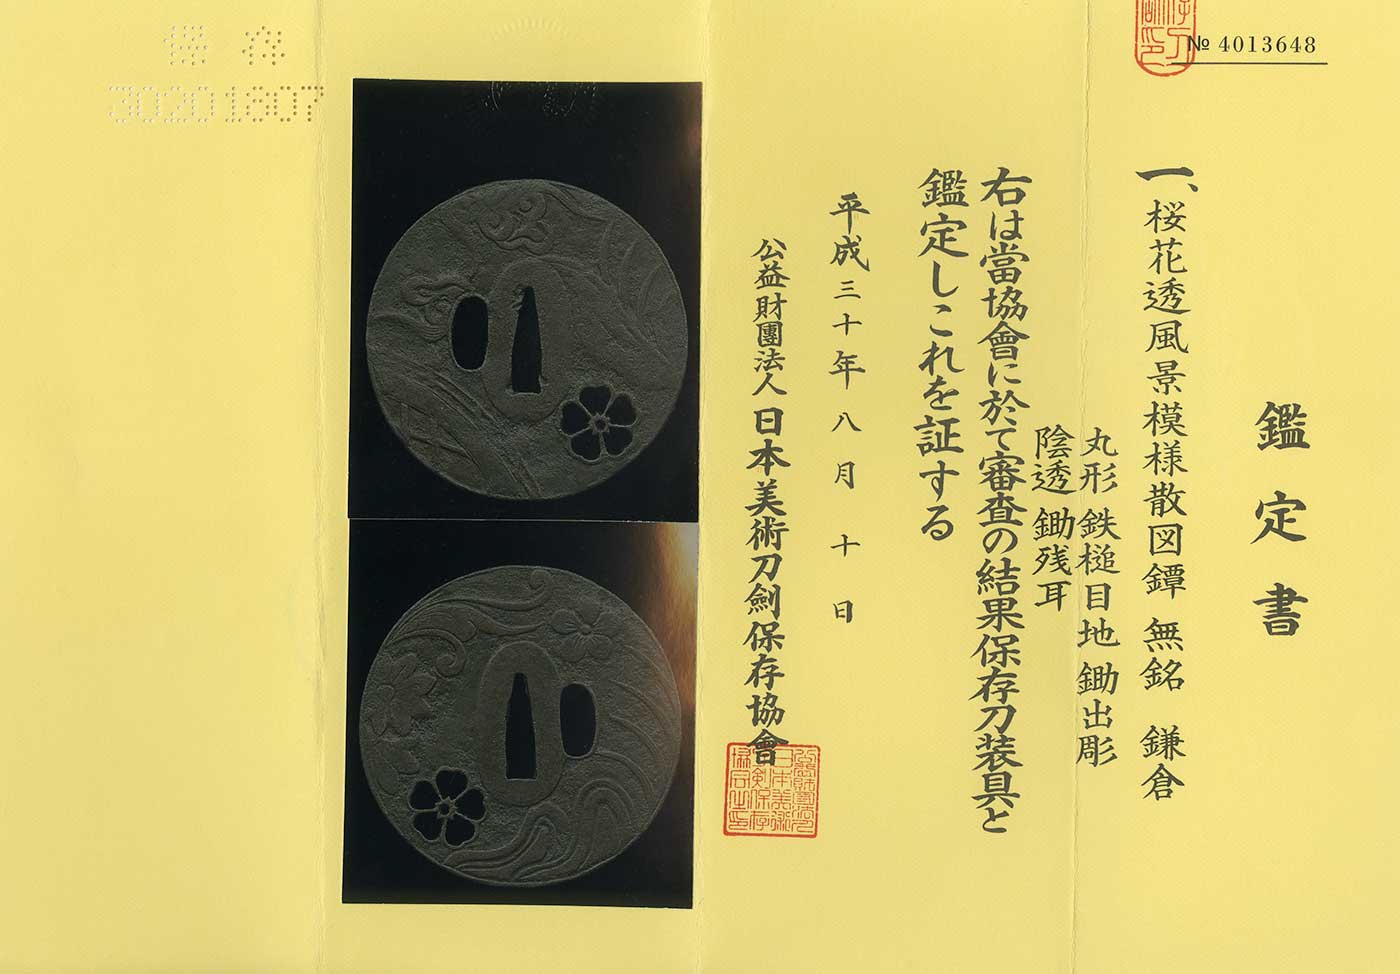 № 4013648
鑑定書
一、桜花透風景模様散図鐔 無銘 鎌倉
丸形 鉄槌目地 鋤出彫
陰透 鋤残耳
右は當協會に於て審査の結果保存刀装具と
鑑定しこれを証する
平成三十年八月十日
公益財團法人 日本美術刀劍保存協會
保存
30201807